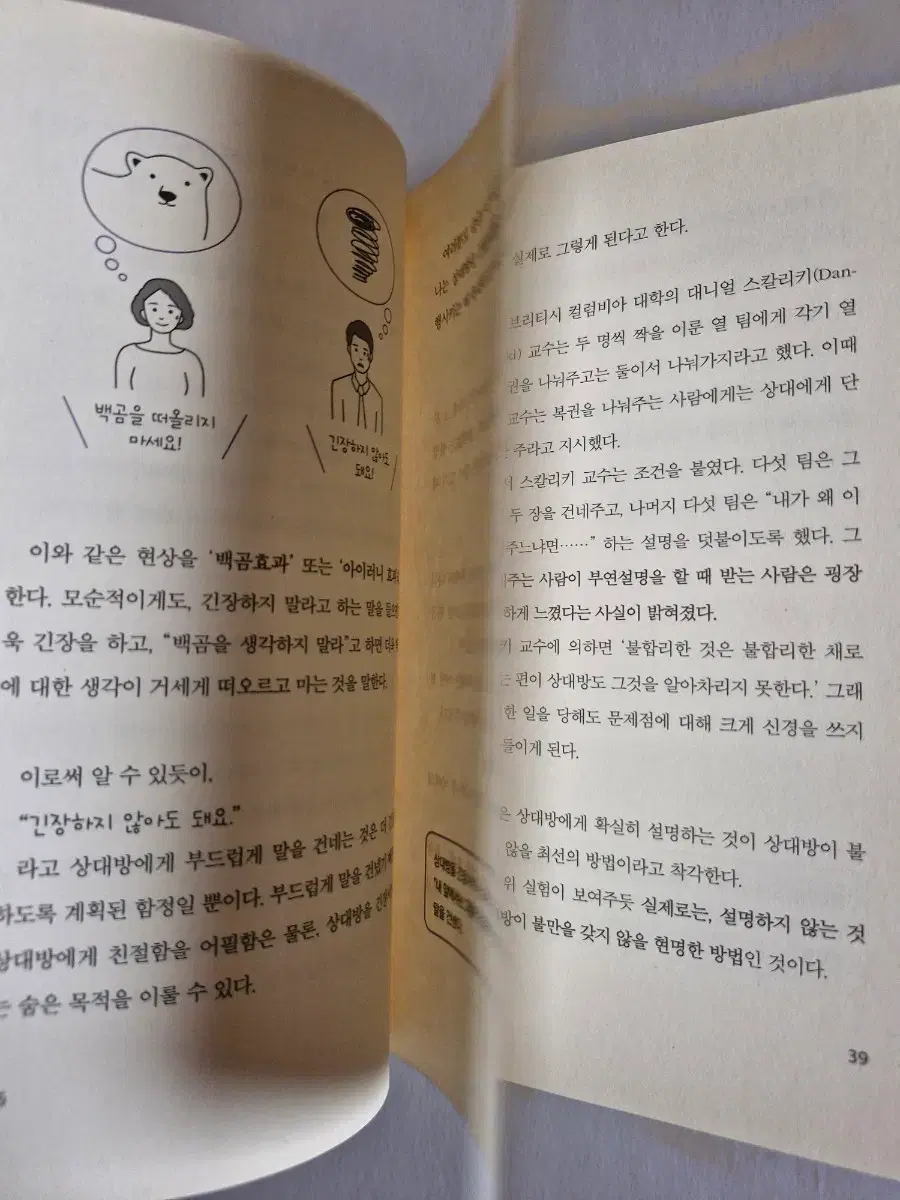 백곰을 떠올리지
마세요!
긴장하지 않아도
돼요!
이와 같은 현상을 '백곰효과' 또는 '아이러니
한다. 모순적이게도, 긴장하지 말라고 하는 말을
욱 긴장을 하고, "백곰을 생각하지 말라"고 하면
에 대한 생각이 거세게 떠오르고 마는 것을 말한다.
이로써 알 수 있듯이.
"긴장하지 않아도 돼요."
라고 상대방에게 부드럽게 말을 건네는 것은 더
하도록 계획된 함정일 뿐이다. 부드럽게 말을
상대방에게 친절함을 어필함은 물론, 상대방을
는 숨은 목적을 이룰 수 있다.
나는
상대방을
말을 건넨다.
실제로 그렇게 된다고 한다.
브리티시 컬럼비아 대학의 대니얼 스칼리키(Dan-
교수는 두 명씩 짝을 이룬 열 팀에게 각기 열
권을 나눠주고는 둘이서 나눠가지라고 했다. 이때
교수는 복권을 나눠주는 사람에게는 상대에게 단
주라고 지시했다.
스칼리키 교수는 조건을 붙였다. 다섯 팀은 그
두 장을 건네주고, 나머지 다섯 팀은 "내가 왜 이
주느냐면……" 하는 설명을 덧붙이도록 했다. 그
주는 사람이 부연설명을 할 때 받는 사람은 굉장
하게 느꼈다는 사실이 밝혀졌다.
키 교수에 의하면 '불합리한 것은 불합리한 채로
는 편이 상대방도 그것을 알아차리지 못한다.' 그래
한 일을 당해도 문제점에 대해 크게 신경을 쓰지
들이게 된다.
은 상대방에게 확실히 설명하는 것이 상대방이 불
않을 최선의 방법이라고 착각한다.
위 실험이 보여주듯 실제로는, 설명하지 않는 것
방이 불만을 갖지 않을 현명한 방법인 것이다.
39